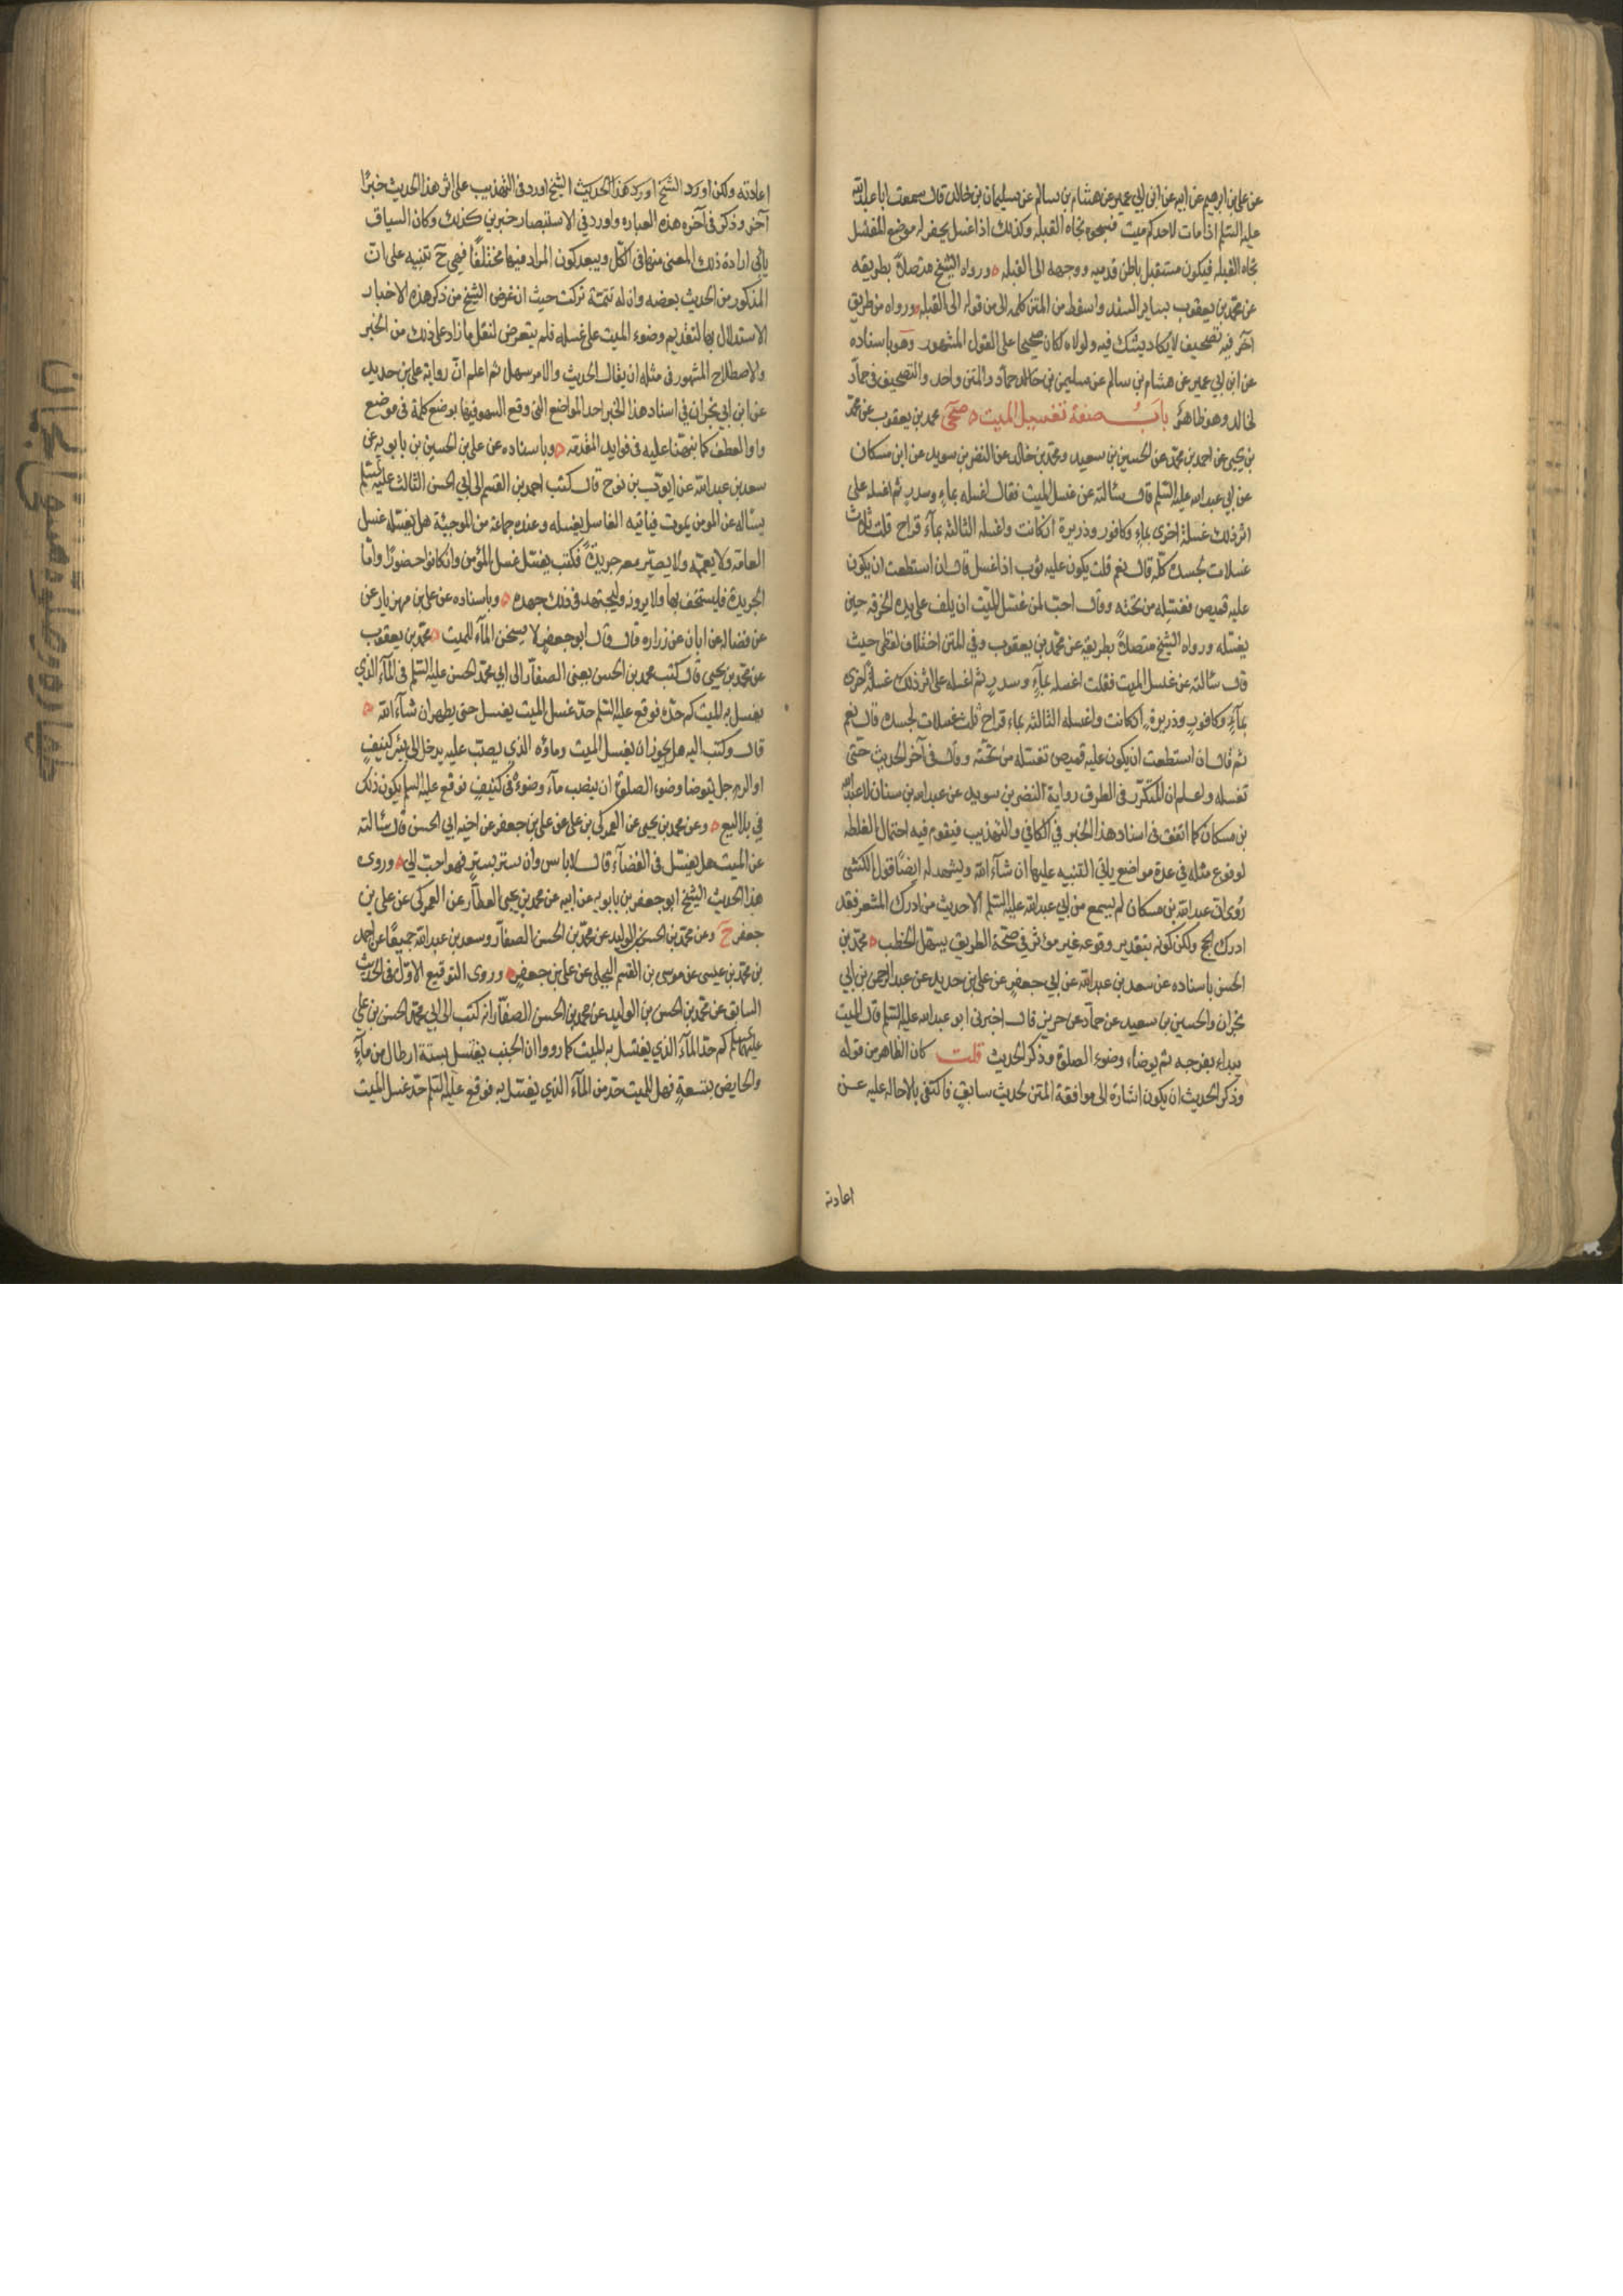 عن علي بن ابرهيم عن ابيه عن ابن ابي عمير عن هشام بن سالم عن سليمان بن خالد قال سمعت ابا عبد الله
عليه السلم اذا مات لاحدكم ميت فسجوه تجاه القبله وكذلك اذا غسل يحفر له موضع المغتسل
تجاه القبله فيكون مستقبل باطن قدميه ووجهه الى القبله ورواه الشيخ متصلاً بطريقه
عن محمد بن يعقوب بساير السند واسقط من المتن كلمه الى من قوله الى القبله ورواه من طريق
آخر فيه تصحيف لا يكاد يشك فيه ولولاه لكان صحيحا على القول المشهور وهو باسناده
عن ابن ابي عمير عن هشام بن سالم عن سليمن بن خالد حماد والمتن واحد والتصحيف في حماد
لخالد وهو ظاهر باب صفة تغسيل الميت صحى محمد بن يعقوب عن محمد
بن يحيى عن احمد بن محمد عن الحسين بن سعيد ومحمد بن خالد عن النضر بن سويد عن ابن مسكان
عن ابي عبد الله عليه السلم قال سئالته عن غسل الميت فقال اغسله بماء وسدر ثم اغسله على
اثر ذلك غسلة اخرى بماء وكافور وذريرة ان كانت واغسله الثالثة بماء قراح قلت ثلاث
غسلات لجسده كله قال نعم قلت يكون عليه ثوب اذا غسل قال ان استطعت ان يكون
عليه قميص فغسله من تحته وقال احب لمن غسل الميت ان يلف على يده الخرقه حين
يغسله ورواه الشيخ متصلاً بطريقه عن محمد بن يعقوب وفي المتن اختلاف لفظي حيث
قال سئالته عن غسل الميت فقلت اغسله بماءٍ وسدرٍ ثم اغسله على اثر ذلك غسلة اخرى
بماءٍ وكافورٍ وذريرةٍ ان كانت واغسله الثالثه بماء قراح ثلث غسلات لجسده قال نعم
ثم قال ان استطعت ان يكون عليه قميص تغسله من تحته وقال في آخر الحديث حتى
تغسله واعلم ان المتكرر في الطرق رواية النضر بن سويد عن عبد الله بن سنان لا عبد الله
بن مسكان كما اتفق في اسناد هذا الخبر في الكافي والتهذيب فيقوم فيه احتمال الغلط
لوقوع مثله في عدة مواضع ياتي التنبيه عليها ان شآء الله ويشهد له ايضاً قول الكشي
رُوى ان عبد الله بن مسكان لم يسمع من ابي عبد الله عليه السلم الا حديث من ادرك المشعر فقد
ادرك الحج ولكن كونه بتقدير وقوعه غير مؤثر في صحة الطريق يسهل الخطب محمد بن
الحسن باسناده عن سعد بن عبد الله عن ابي جعفر عن علي بن حديد عن عبد الرحمن بن ابي
نجران والحسين بن سعيد عن حماد عن حريز قال اخبرني ابو عبد الله عليه السلم قال الميت
يبداء بفرجه ثم يوضاء وضوء الصلوة وذكر الحديث قلت كان الظاهر من قوله
وذكر الحديث ان يكون اشارة الى موافقة المتن لحديث سابق فاكتفى بالاحاله عليه عن
اعادته
اعادته ولكن اورد الشيخ اورد هذا الحديث الشيخ اورد في التهذيب على اثر هذا الحديث خبرًا
آخر وذكر في آخره هذه العباره واورد في الاستبصار خبرين كذلك وكان السياق
يابى ارادة ذلك المعنى منها في الكل ويبعد كون المراد فيها مختلفًا فهي ح تنبيه على ان
المذكور من الحديث بعضه وان له تتمة تركت حيث ان غرض الشيخ من ذكر هذه الاخبار
الاستدلال بها لتقديم وضوء الميت على غسله فلم يتعرض لنقل ما زاد على ذلك من الخبر
والاصطلاح المشهور في مثله ان يقال الحديث والامر سهل ثم اعلم انّ رواية علي بن حديد
عن ابن ابي نجران في اسناد هذا الخبر احد المواضع التي وقع السهو فيها بوضع كلمة في موضع
واو العطف كما نبهنا عليه في فوايد المقدمه وباسناده عن علي بن الحسين بن بابويه عن
سعد بن عبد الله عن ايوب بن نوح قال كتب احمد بن القسم الى ابي الحسن الثالث عليه السلم
يسأله عن المومن يموت فياتيه الغاسل يغسله وعنده جماعة من المرجئة هل يغسله غسل
العامة ولا يعممه ولا يصير معه جريدةً فكتب يغسل غسل المؤمن وان كانوا حضورًا وامّا
الجريدة فليستخف بها ولا يرونه وليجتهد في ذلك جهده وباسناده عن علي بن مهزيار عن
عن فضاله عن ابان عن زراره قال قال ابو جعفر لا يسخن المآء للميت محمد بن يعقوب
عن محمد بن يحيى قال كتب محمد بن الحسن يعنى الصفار الى ابي محمد الحسن عليه السلم في المآء الذي
يغسل به الميت كم حدّه فوقع عليه السلم حدّ غسل الميت يغسل حتى يطهر ان شآء الله
قال وكتب اليه هل يجوز ان يغسل الميت وماؤه الذي يصب عليه يدخل الى بئر كنيف
او الرجل يتوضا وضوء الصلوة ان يصب مآء وضوءه في كنيفٍ فوقع عليه السلم يكون ذلك
في بلاليع وعن محمد بن يحيى عن العمركي بن علي عن علي بن جعفر عن اخيه ابي الحسن قال سئالته
عن الميت هل يغسل في الفضآء قال لا باس وان ستر بسترٍ فهو احب الي وروى
هذا الحديث الشيخ ابو جعفر بن بابويه عن ابيه عن محمد بن يحيى العطار عن العمركي عن علي بن
جعفر ح وعن محمد بن الحسن بن الوليد عن محمد بن الحسن الصفار وسعد بن عبد الله جميعًا عن احمد
بن محمد بن عيسى عن موسى بن القسم البجلي عن علي بن جعفر وروى التوقيع الاول في الحديث
السابق عن محمد بن الحسن بن الوليد عن محمد بن الحسن الصفار انه كتب الى ابي محمد الحسن بن علي
عليهما السلم كم حد المآء الذي يغسل به الميت كما رووا ان الجنب يغتسل بستة ارطال من مآءٍ
والحايض بتسعةٍ فهل للميت حد من المآء الذي يغسل به فوقع عليه السلم حدّ غسل الميت